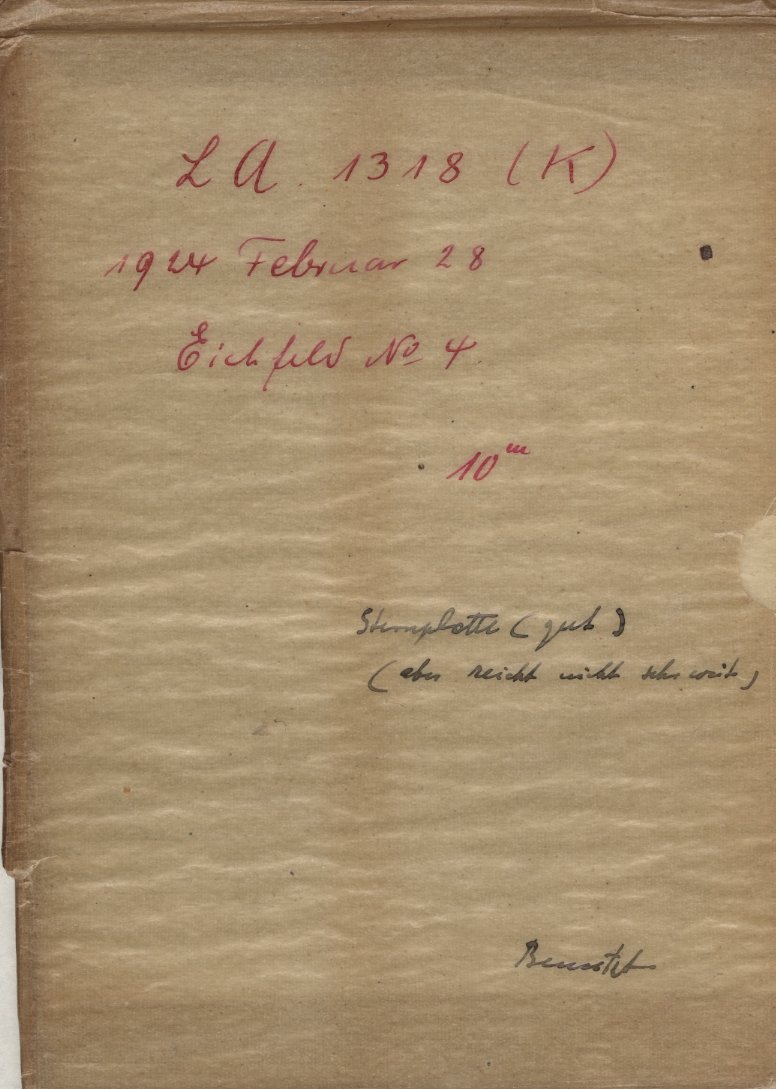 LA. 1318 (K)
1924 Februar 28
Eichfeld No 4
10ᵐ
Sternplatte (gut)
(aber reicht nicht sehr weit)
Benutzt